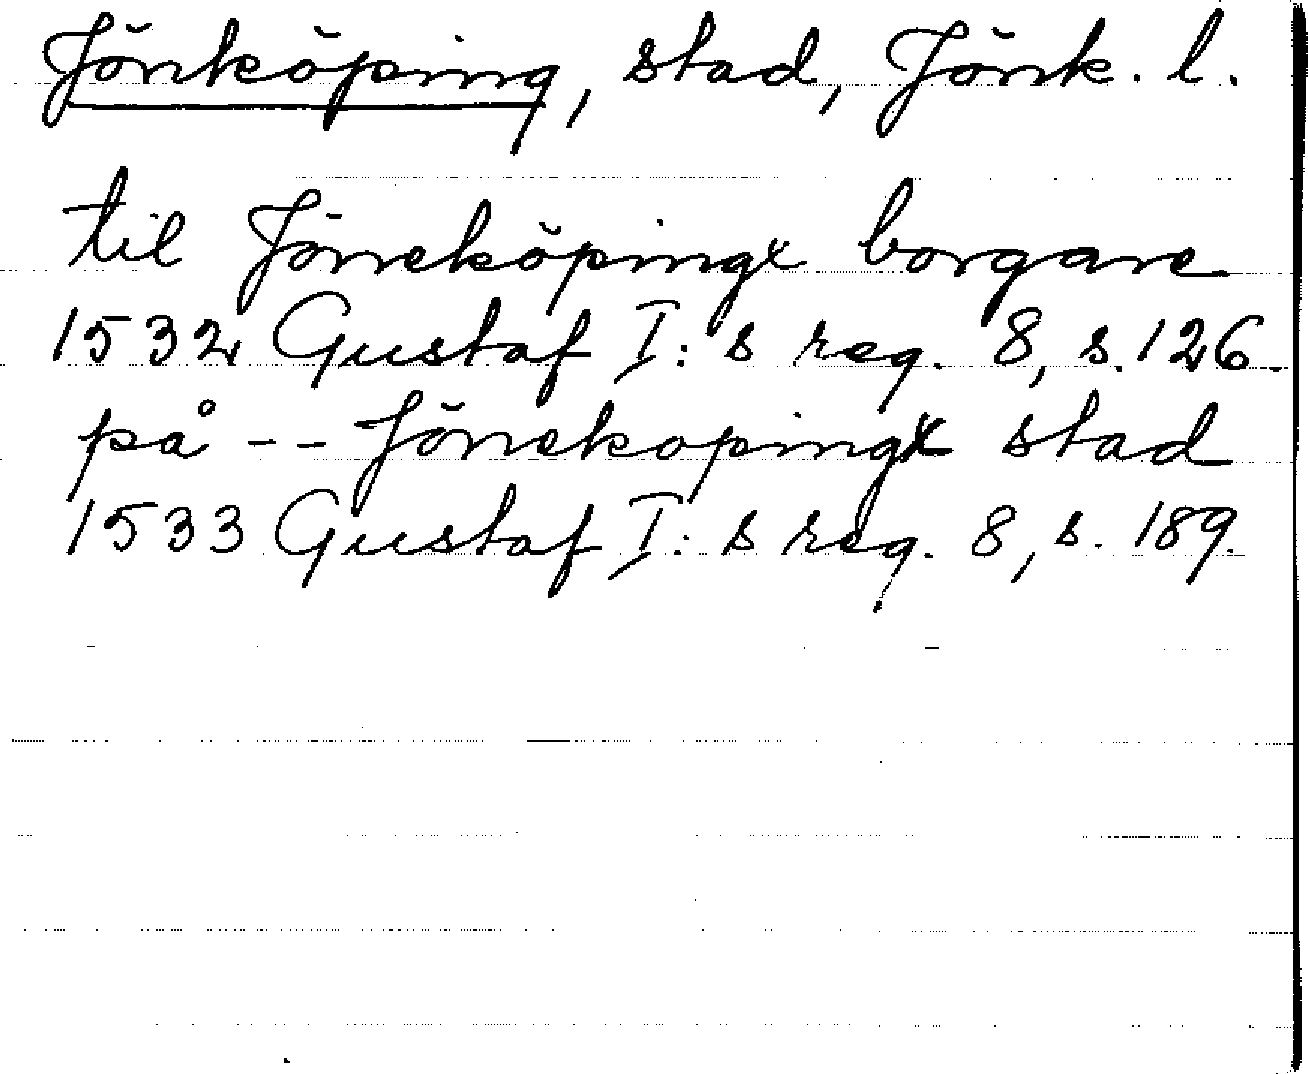 Jönköping, stad, Jönk. l.
til Jöneköpingx borgare
1532 Gustaf I:s reg. 8, s. 126.
på -- Jönekopingx stad
1533 Gustaf I:s reg. 8, s. 189.